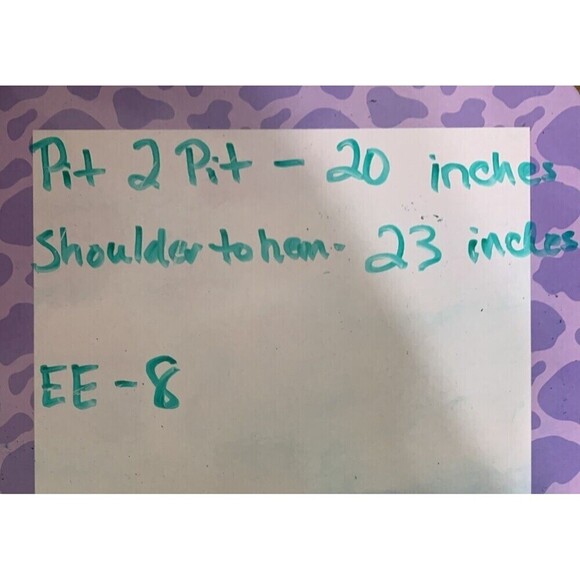 Pit 2 Pit - 20 inches
Shoulder to hem- 23 inches
EE - 8